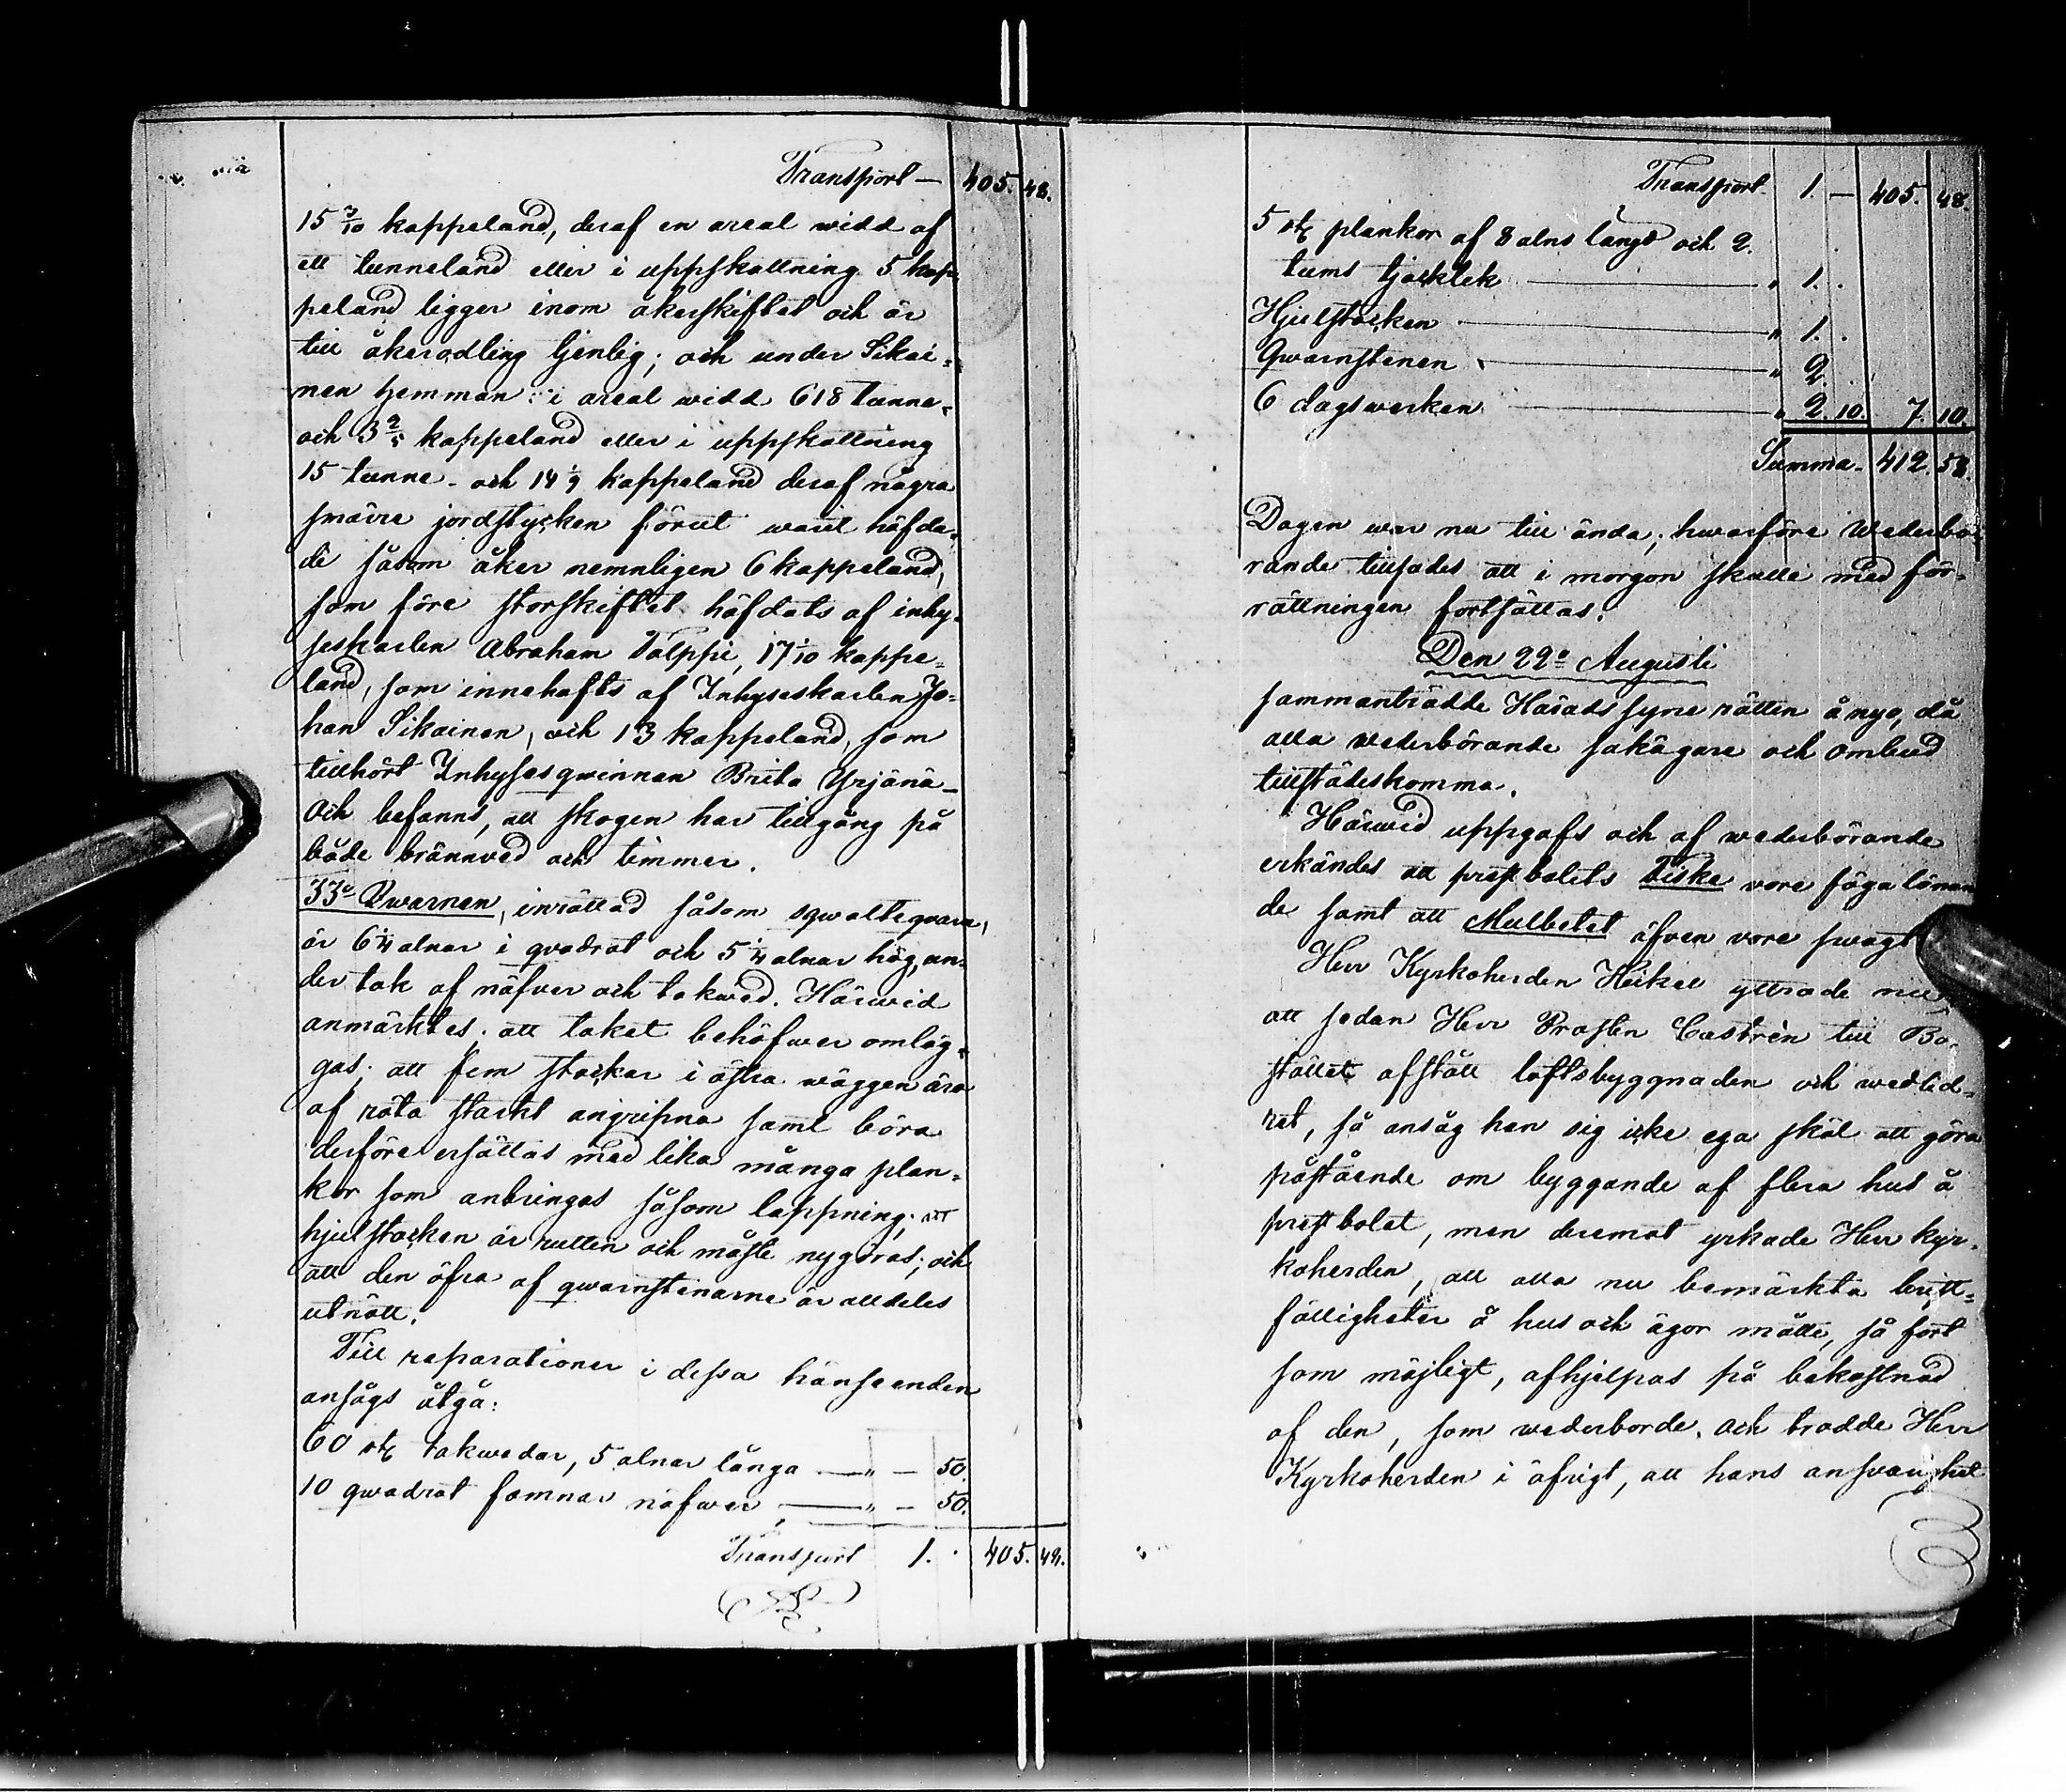 Transport — 405. 48.
15 3/10 kappeland, deraf en areal widd af
ett tunneland eller i uppskattning 5 kap-
peland ligger inom åkerskiftet och är
till åkerodling tjenlig; och under Sikai-
nen hemman i areal widd 618 tunne-
och 3 2/5 kappeland eller i uppskattning
15 tunne- och 14 1/9 kappeland deraf några
smärre jordstycken förut warit häfda-
de såsom åker nemnligen 6 kappeland,
som före storskiftet häfdats af inhy-
seskarlen Abraham Talppi, 17 1/10 kappe-
land, som innehafts af Inhyseskarlen Jo-
han Sikainen, och 13 kappeland, som
tillhört Inhysesqwinnan Brita Yrjänä —
Och befanns, att skogen har tillgång på
både brännved och timmer.
33o Qwarnen, inrättad såsom sqwalteqvarn,
är 6 1/4 alnar i qvadrat och 5 1/4 alnar hög, un-
der tak af näfver och takwed. Härwid
anmärktes; att taket behöfwer omläg-
gas; att fem stockar i östra wäggen äro
af röta starkt angripna samt böra
derföre ersättas med lika många plan-
kor som anbringas såsom lappning; att
hjulstocken är rutten och måste nygöras; och
att den öfra af qwarnstenarne är alldeles
utnött.
Till reparationer i dessa hänseenden
ansågs åtgå:
60 st. takwedar, 5 alnar långa — " — 50.
10 qwadrat famnar näfwer — " — 50.
Transport 1. . 405. 48.
Transport 1. — 405. 48.
5 st. plankor af 8 alns längd och 2
tums tjocklek — " 1. .
Hjulstocken — " 1. .
Qwarnstenen — " 2.
6 dagswerken — " 2. 10. 7. 10.
Summa - 412. 58.
Dagen war nu till ända; hwarföre wederbö-
rande tillsades att i morgon skulle med för-
rättningen fortsättas.
Den 22o Augusti
sammanträdde Häradssyne rätten å nyo, då
alla wederbörande sakägare och ombud
tillstädeskommo.
Härwid uppgafs och af wederbörande
erkändes att prestbolets Fiske vore föga lönan
de samt att Mulbetet äfven vore swagt
Herr Kyrkoherden Heikel yttrade nu
att sedan Herr Prosten Castrén till Bo-
stället afstått loftsbyggnaden och wedlid-
ret, så ansåg han sig icke ega skäl att göra
påstående om byggande af flera hus å
prestbolet, men deremot yrkade Herr kyr-
koherden, att alla nu bemärkta brist-
fälligheter å hus och ägor måtte, så fort
som möjligt, afhjelpas på bekostnad
af den, som wederborde. och trodde Herr
Kyrkoherden i öfrigt, att hans answarighet